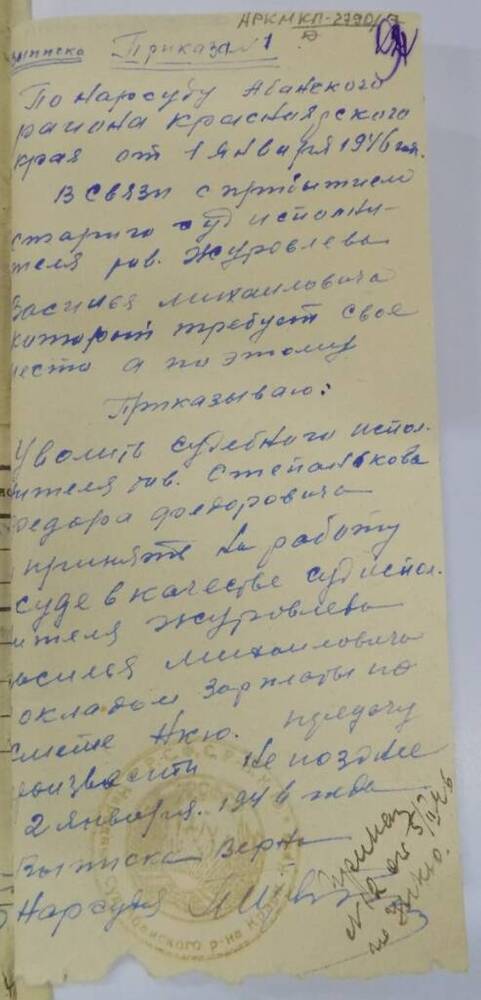 АРКМ КП-2790/7
Д
выписка Приказа №1
По Нарсуду Абанского
района Красноярского
края от 1 января 1946 г.
В связи с прибытием
старого суд исполни-
теля тов. Журовлева
Василия Михаиловича
который требует свое
место а по этому
Приказываю:
Уволить судебного испол.
нителя тов. Степанькова
Федора Федоровича
принять на работу
суде в качестве суд испол.
нителя Журовлева
Василия Михаиловича
окладом зарплаты по
смете Нкю. передачу
произвести не позднее
2 января. 1946 года
Выписка Верна
Нарсудья
Приказ
№12 от 5/I 1946
по Нкю.